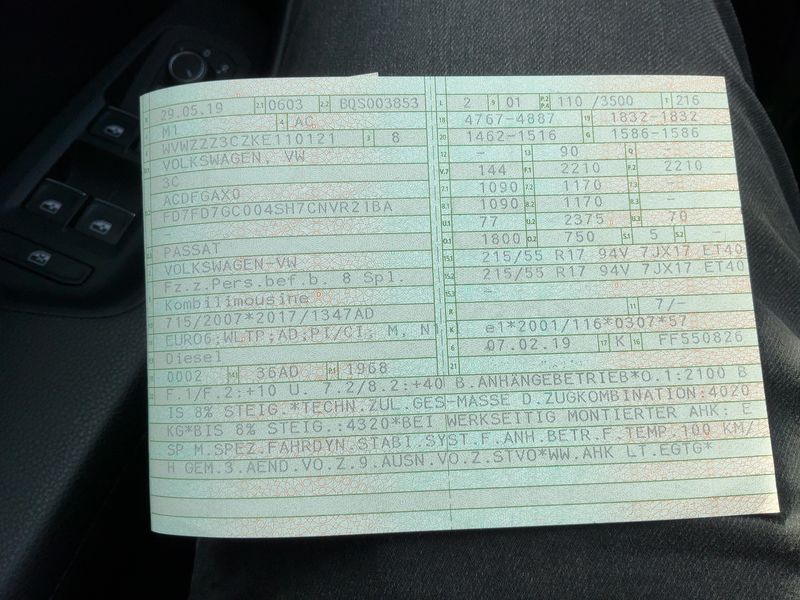 B 29.05.19 2.1 0603 2.2 BQS003853
J M1 4 AC
E WVWZZZ3CZKE110121 3 8
D.1 VOLKSWAGEN, VW
3C
D.2 ACDFGAX0
FD7FD7GC004SH7CNVR21BA
-
D.3 PASSAT
2 VOLKSWAGEN-VW
5 Fz.z.Pers.bef.b. 8 Spl.
Kombilimousine
V.9 715/2007*2017/1347AD
14 EURO6;WLTP;AD;PI/CI, M, N1
P.3 Diesel
10 0002 14.1 36AD P.1 1968
L 2 9 01 P.2 P.4 110 /3500 T 216
18 4767-4887 19 1832-1832
20 1462-1516 G 1586-1586
12 - 13 90 Q -
V.7 144 F.1 2210 F.2 2210
7.1 1090 7.2 1170 7.3 -
8.1 1090 8.2 1170 8.3 -
U.1 77 U.2 2375 U.3 70
O.1 1800 O.2 750 S.1 5 S.2 -
15.1 215/55 R17 94V 7JX17 ET40
15.2 215/55 R17 94V 7JX17 ET40
15.3 -
R 11 7/-
K e1*2001/116*0307*57
6 07.02.19 17 K 16 FF550826
21
22 F.1/F.2:+10 U. 7.2/8.2:+40 B.ANHÄNGEBETRIEB*O.1:2100 B
IS 8% STEIG.*TECHN.ZUL.GES-MASSE D.ZUGKOMBINATION:4020
KG*BIS 8% STEIG.:4320*BEI WERKSEITIG MONTIERTER AHK: E
SP M.SPEZ.FAHRDYN.STABI.SYST.F.ANH.BETR.F.TEMP.100 KM/
H GEM.3.AEND.VO.Z.9.AUSN.VO.Z.STVO*WW.AHK LT.EGTG*